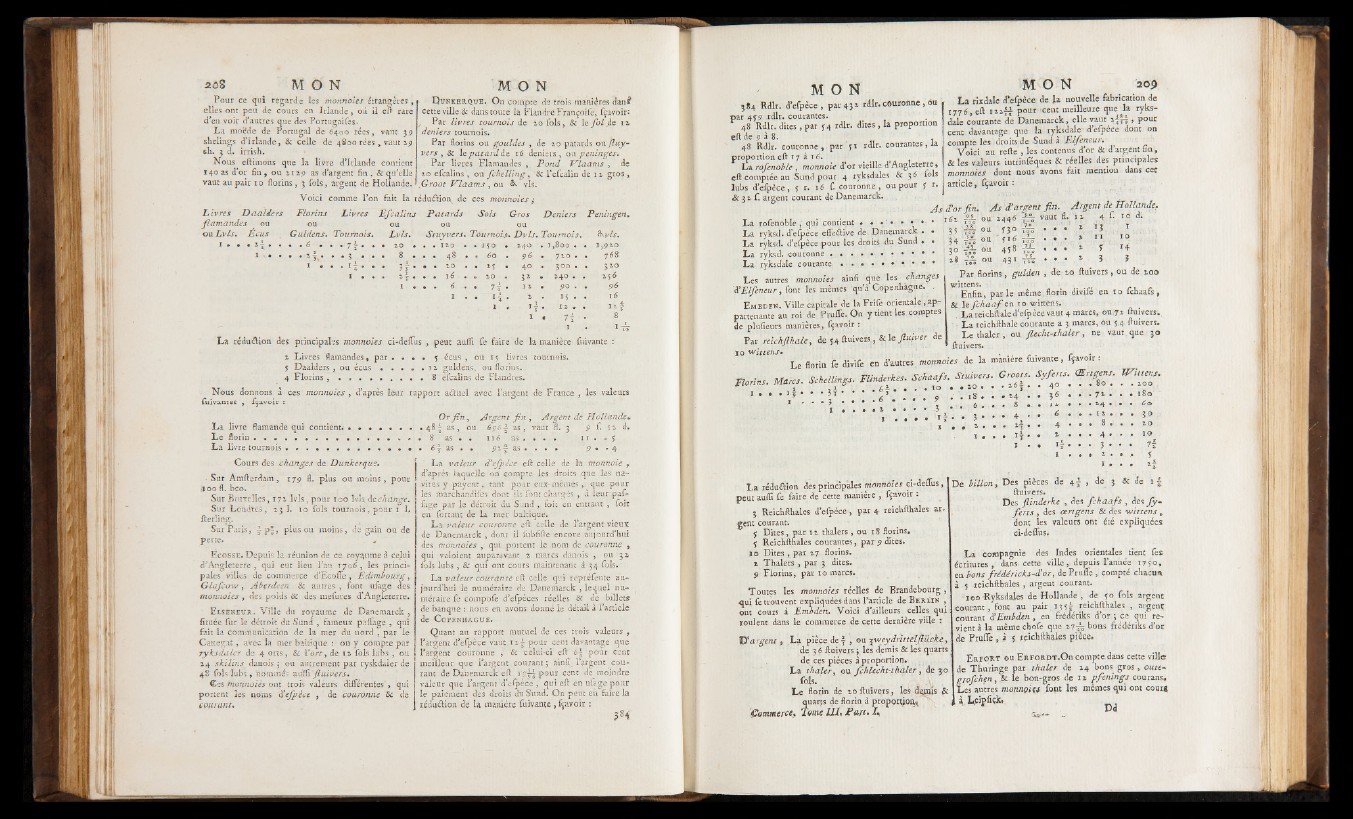 208 MON MON
Pour ce qui regarde les monnoies étrangères,
elles ont peu de cours en Irlande, où il est rare
d'en voir d'autres que des Portugaises.
La moëde de Portugal de 6400 rées, vaut 39
shelings d'Irlande, & celle de 4800 rées, vaut 29
sh. 3 d. irrish.
Nous estimons que la livre d'Irlande contient
140 as d'or fin, ou 2129 as d'argent fin, & qu'elle
vaut au pair 10 florins, 3 sols, argent de Hollande.
DUNKERQUE. On compte de trois manières dans
cette ville & dans toute la Flandre Françoise, sçavoir:
Par livres tournois de 20 sols, & le sol de 12
deniers tournois.
Par florins ou gouldes, de 20 patards ou stuy-
vers, & le patard de 16 deniers, ou peningen.
Par livres Flamandes, Pond Vlaams, de
20 escalins, ou schelling, & l'escalin de 12 gros,
Groot Vlaams, ou vls.
Voici comme l'on fait la réduction de ces monnoies;
Livres Daalders Florins Livres Escalins Patards Sols Gros Deniers Peningen.
flamandes ou ou ou ou ou
ou Lvls. Écus Guldens. Tournois. Lvls. Stuyvers. Tournois. Dvls. Tournois. hvls.
1 . . . 2 1/2 . . . . 6 . . . 7 1/2 . . . 20 . . . 120 . . 150 . 240 . 1,800 . . 1,920
1 . . . . 2 2/5 . . . 3 . . . . 8 . . . 48 . . 60 . 96 . 720 . . 768
1 . . . 1 1/4 . . . 3 1/3 . . . 20 . . 25 . 40 . 300 . . 320
1 . . . . 2 2/3 . . . 16 . . 20 . 32 . 240 . . 256
1 . . . 6 . . 7 1/2 . 12 . 90 . . 96
1 . . 1 1/4 . 2 . 15 . . 16
1 . 1 3/5 . 12 . . 12 4/5
1 . 7 1/2 . 8
1 . 1 1/15
La réduction des principales monnoies ci-dessus, peut aussi se faire de la manière suivante :
2 Livres flamandes, par . . . . 5 écus, ou 15 livres tournois.
5 Daalders, ou écus . . . . . 12 guldens, ou florins.
4 Florins, . . . . . . . . . 8 escalins de Flandres.
Nous donnons à ces monnoies, d'après leur rapport actuel avec l'argent de France, les valeurs
suivantes, sçavoir :
Or fin, Argent fin, Argent de Hollande.
La livre flamande qui contient. . . . . . . . 48 1/2 as, ou as, vaut fl. 3 9 s. 12 d.
Le florin . . . . . . . . . . . . . . . . 8 as . . 116 as . . . . 11 . . 5
La livre tournois . . . . . . . . . . . . . as . . as . . . . 9 . . 4
Cours des changes de Dunkerque.
Sur Amsterdam, 179 fl. plus ou moins, pour
200 fl. bco.
Sur Bruxelles, 172 lvls, pour 100 lvls de change.
Sur Londres, 23 l. 10 sols tournois, pour 1 l.
sterling.
Sur Paris, 1/2 p%, plus ou moins, de gain ou de
perte.
ECOSSE. Depuis la réunion de ce royaume à celui
d'Angleterre, qui eut lieu l'an 1706, les princi-
pales villes de commerce d'Ecosse, Edimbourg,
Glascow, Aberdeen & autres, font usage des
monnoies, des poids & des mesures d'Angleterre.
ELSENEUR. Ville du royaume de Danemarck,
située sur le détroit du Sund, fameux passage, qui
fait la communication de la mer du nord, par le
Categatt, avec la mer baltique : on y compte par
ryksdaler de 4 orts, & l'ort, de 12 sols lubs, ou
24 skilins danois; ou autrement par ryskdaler de
48 sols lubs, nommés aussi stuivers.
Ces monnoies ont trois valeurs différentes, qui
portent les noms d'espèce, de couronne & de
courant.
La valeur d'espèce est celle de la monnoie,
d'après laquelle on compte les droits que les na-
vires y payent, tant pour eux-mêmes, que pour
les marchandises dont ils sont chargés, à leur pas-
sage par le détroit du Sund, soit en entrant, soit
en sortant de la mer baltique.
La valeur couronne est celle de l'argent vieux
de Danemarck, dont il subsiste encore aujourd'hui
des monnoies, qui portent le nom de couronne,
qui valoient auparavant 2 marcs danois, ou 32
sols lubs, & qui ont cours maintenant à 34 sols.
La valeur courante est celle qui représente au-
jourd'hui le numéraire de Danemarck, lequel nu-
méraire se compose d'espèces réelles & de billets
de banque : nous en avons donné le détail à l'article
de COPENHAGUE.
Quant au rapport mutuel de ces trois valeurs,
l'argent d'espèce vaut 12 1/2 pour cent davantage que
l'argent couronne, & celui-ci est 6 1/4 pour cent
meilleur que l'argent courant; ainsi l'argent cou-
rant de Danemarck est pour cent de moindre
valeur que l'argent d'espèce, qui est en usage pour
le paiement des droits du Sund. On peut en faire la
réduction de la manière suivante, sçavoir :
384
MON MON 209
384 Rdlr. d'espèce, par 432 rdlr. couronne, ou
par 459 rdlr. courantes.
48 Rdlr. dites, par 54 rdlr. dites, la proportion
est de 9 à 8.
48 Rdlr. couronne, par 51 rdlr. courantes, la
proportion est 17 à 16.
La rosenoble, monnoie d'or vieille d'Angleterre,
est comptée au Sund pour 4 ryksdales & 36 sols
lubs d'espèce, 5 r. 16 s. couronne, ou pour 5 r.
& 32 s. argent courant de Danemarck.
La rixdale d'espèce de la nouvelle fabrication de
1776, est pour cent meilleure que la ryks-
dale courante de Danemarck, elle vaut , pour
cent davantage que la ryksdale d'espèce dont on
compte les droits de Sund à Elseneur.
Voici au reste, les contenus d'or & d'argent fin,
& les valeurs intrinséques & réelles des principales
monnoies dont nous avons fait mention dans cet
article, sçavoir :
As d'or fin. As d'argent fin. Argent de Hollande.
La rosenoble, qui contient . . . . . . . . 162 ou 2446 vaut fl. 12 4 s. 10 d.
La ryksd. d'espèce effective de Danemarck . . 35 ou 530 . . . . 2 13 1
La ryksd. d'espèce pour les droits du Sund . . 34 ou 516 . . . . 2 11 10
La ryksd. couronne . . . . . . . . . . 30 ou 458 . . . . 2 5 14
La ryksdale courante . . . . . . . . . . 28 ou 431 . . . . 2 3 3
Les autres monnoies ainsi que les changes
d'Elseneur, sont les mêmes qu'à Copenhague.
EMBDEN. Ville capitale de la Frise orientale, ap-
partenante au roi de Prusse. On y tient les comptes
de plusieurs manières, sçavoir :
Par reichsthale, de 54 stuivers, & le stuiver de
10 wittens.
Par florins, gulden, de 20 stuivers, ou de 200
wittens.
Enfin, par le même florin divisé en 10 schaafs,
& le schaaf en 20 wittens.
La reichsthale d'espèce vaut 4 marcs, ou 72 stuivers.
La reichsthale courante a 3 marcs, ou 54 stuivers.
Le thaler, ou slecht-thaler, ne vaut que 30
stuivers.
Le florin se divise en d'autres monnoies de la manière suivante, sçavoir :
Florins. Marcs. Schellings. Flinderkes. Schaafs. Stuivers. Groots. Syferts. Œrtgens. Wittens.
1 . . . 1 1/9 . . . 3 1/3 . . . . 6 2/3 . . . 10 . . . 20 . . . 26 2/3 . . 40 . . . 80 . . . 200
1 . . . 3 . . . . 6 . . . . 9 . . . 18 . . . 24 . . 36 . . . 72 . . . 180
1 . . . . 2 . . . . 3 . . . 6 . . . 8 . . 12 . . . 24 . . . 60
1 . . . . 1 1/2 . . . 3 . . . 4 . . 6 . . . 12 . . . 30
1 . . . 2 . . . 2 2/3 . . 4 . . . 8 . . . 20
1 . . . 1 1/3 . . 2 . . . 4 . . . 10
1 . . 1 1/2 . . . 3 . . . 7 1/2
1 . . . 2 . . . 5
1 . . . 2 1/2
La réduction des principales monnoies ci-dessus,
peut aussi se faire de cette manière, sçavoir :
3 Reichsthales d'espéce, par 4 reichsthales ar-
gent courant.
5 Dites, par 12 thalers, ou 18 florins.
5 Reichsthales courantes, par 9 dites.
10 Dites, par 27 florins.
2 Thalers, par 3 dites.
9 Florins, par 10 marcs.
Toutes les monnoies réelles de Brandebourg,
qui se trouvent expliquées dans l'article de BERLIN,
ont cours à Embden. Voici d'ailleurs celles qui
roulent dans le commerce de cette dernière ville :
D'argent, La pièce de 2/3, ou zweydrittelstücke,
de 36 stuivers; les demis & les quarts
de ces pièces à proportion.
La thaler, ou schlecht-thaler, de 30
sols.
Le florin de 20 stuivers, les demis &
quarts de florin à proportion.
De billon, Des pièces de 4 1/2, de 3 & de 2 1/2
stuivers.
Des flinderke, des schaafs, des sy-
ferts, des œrtgens & des wittens,
dont les valeurs ont été expliquées
ci-dessus.
La compagnie des Indes orientales tient ses
écritures, dans cette ville, depuis l'année 1750,
en bons frédéricks-d'or, de Prusse, compté chacun
à 5 reichsthales, argent courant.
100 Ryksdales de Hollande, de 50 sols argent
courant, font au pair 135 1/2 reichsthales, argent
courant d'Embden, en frédériks d'or; ce qui re-
vient à la même chose que 27 1/10 bons frédériks d'or
de Prusse, à 5 reichsthales pièce.
ERFORT ou ERFORDT. On compte dans cette ville
de Thuringe par thaler de 24 bons gros, oute-
groschen, & le bon-gros de 12 pfenings courans.
Les autres monnoies sont les mêmes qui ont cours
à Leipsick.
Commerce. Tome III. Part. I. Dd